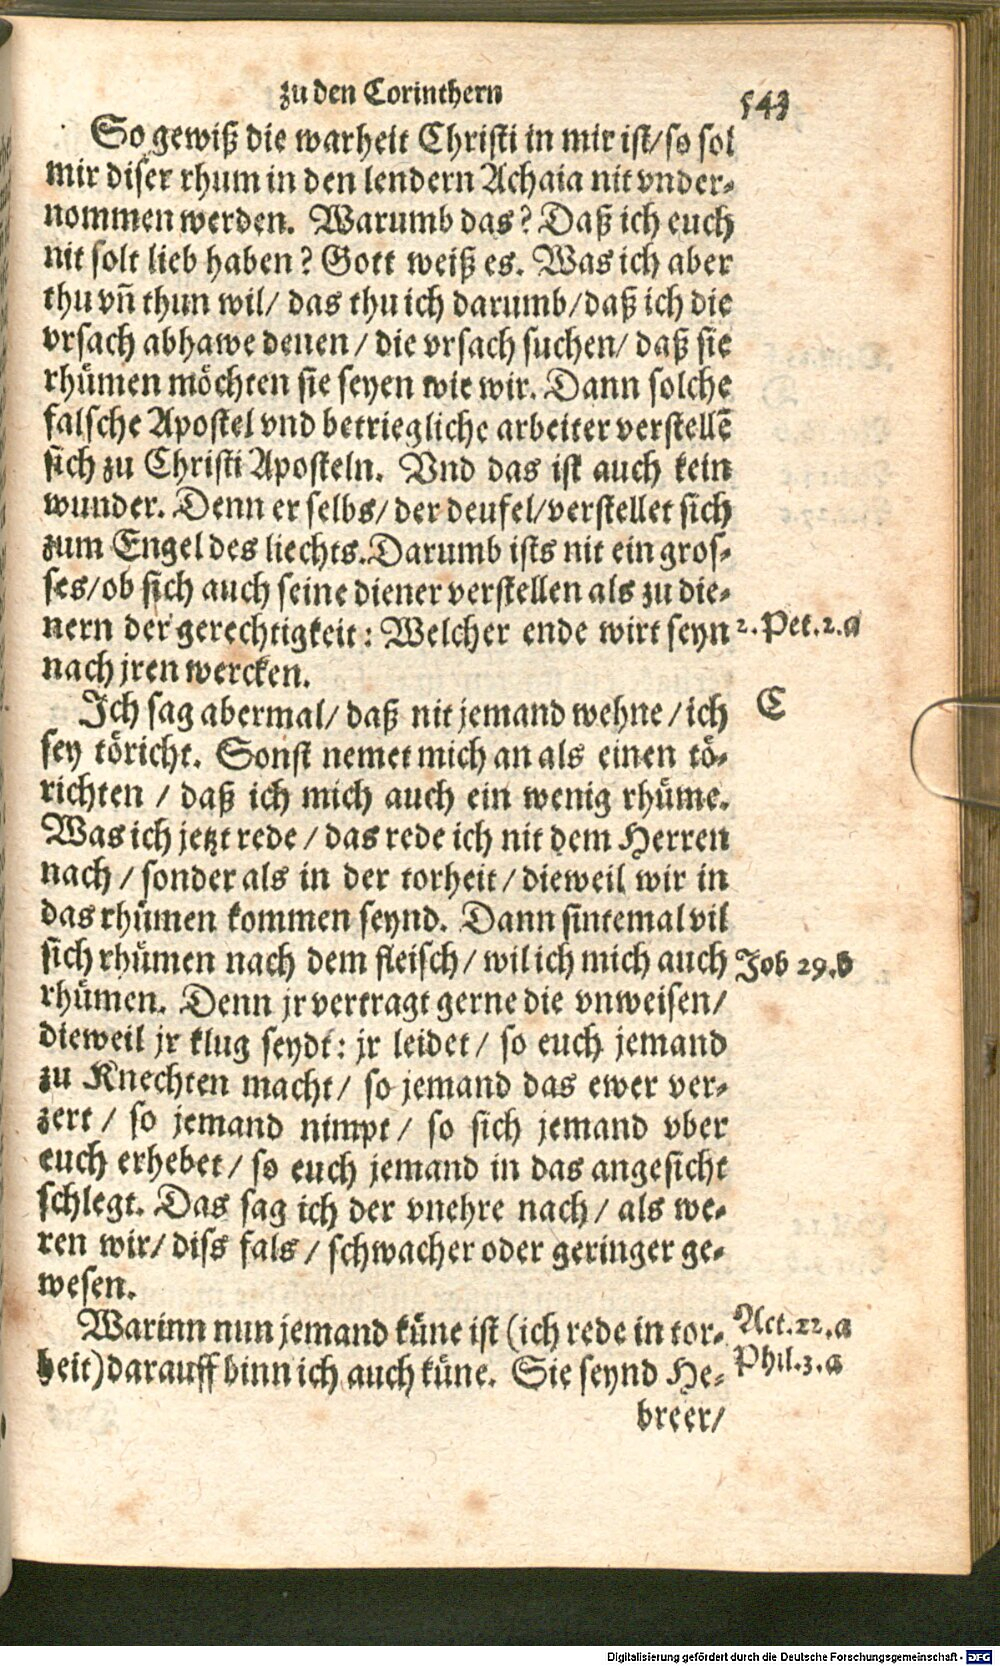 zu den Corinthern 543
So gewiß die warheit Christi in mir ist/ so sol
mir diser rhum in den lendern Achaia nit vnder-
nommen werden. Warumb das? Daß ich euch
nit solt lieb haben? Gott weiß es. Was ich aber
thu vñ thun wil/ das thu ich darumb/ daß ich die
vrsach abhawe denen/ die vrsach suchen/ daß sie
rhümen möchten sie seyen wie wir. Dann solche
falsche Apostel vnd betriegliche arbeiter verstellẽ
sich zu Christi Aposteln. Vnd das ist auch kein
wunder. Denn er selbs/ der deufel/ verstellet sich
zum Engel des liechts. Darumb ists nit ein gros-
ses/ ob sich auch seine diener verstellen als zu die-
nern der gerechtigkeit: Welcher ende wirt seyn 2. Pet. 2. a
nach jren wercken.
Ich sag abermal/ daß nit jemand wehne/ ich C
sey töricht. Sonst nemet mich an als einen tö-
richten/ daß ich mich auch ein wenig rhüme.
Was ich jetzt rede/ das rede ich nit dem Herren
nach/ sonder als in der torheit/ dieweil wir in
das rhümen kommen seynd. Dann sintemal vil
sich rhümen nach dem fleisch/ wil ich mich auch Job 29. b
rhümen. Denn jr vertragt gerne die vnweisen/
dieweil jr klug seydt: jr leidet/ so euch jemand
zu Knechten macht/ so jemand das ewer ver-
zert/ so jemand nimpt/ so sich jemand vber
euch erhebet/ so euch jemand in das angesicht
schlegt. Das sag ich der vnehre nach/ als we-
ren wir/ diss fals/ schwacher oder geringer ge-
wesen.
Warinn nun jemand küne ist (ich rede in tor- Act. 22. a
heit) darauff binn ich auch küne. Sie seynd He- Phil. 3. a
breer/
Digitalisierung gefördert durch die Deutsche Forschungsgemeinschaft - DFG